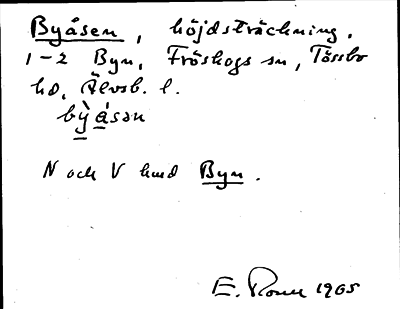 Byåsen, höjdsträckning.
1-2 Byn, Fröskogs sn, Tössbo
hd, Älvsb. l.
bỳåsən
N och V hmd Byn.
E. 1965